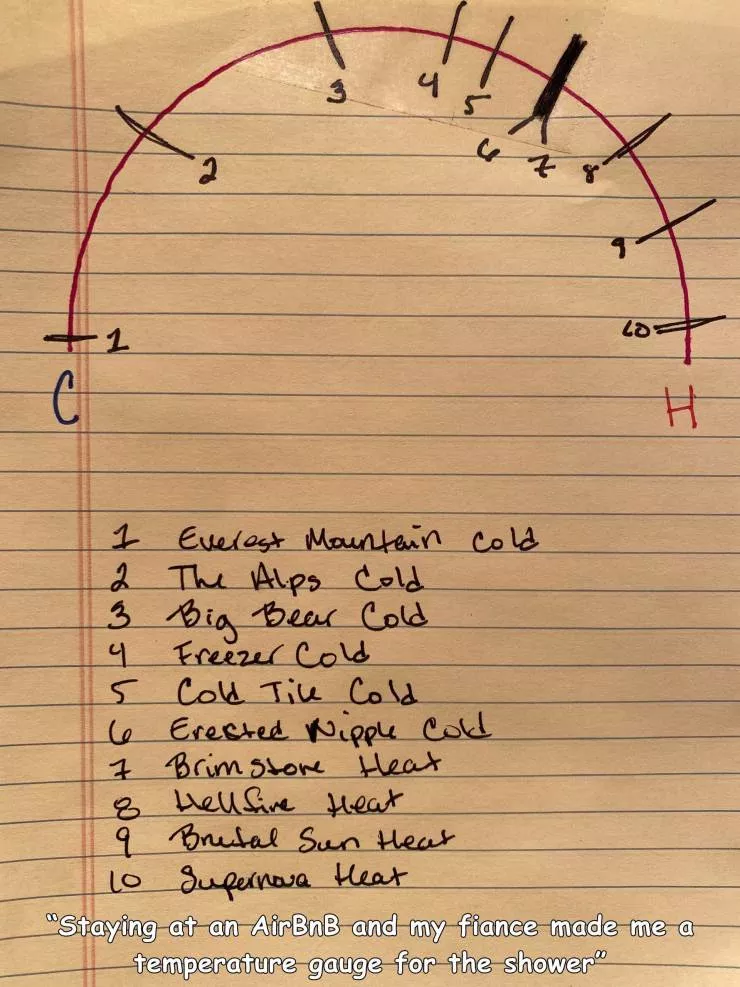 3
4
5
6
7
8
2
9
10
1
C
H
1 Everest Mountain Cold
2 The Alps Cold
3 Big Bear Cold
4 Freezer Cold
5 Cold Tile Cold
6 Erected Nipple Cold
7 Brimstone Heat
8 Hellfire Heat
9 Brutal Sun Heat
10 Supernova Heat
"Staying at an AirBnB and my fiance made me a
temperature gauge for the shower"